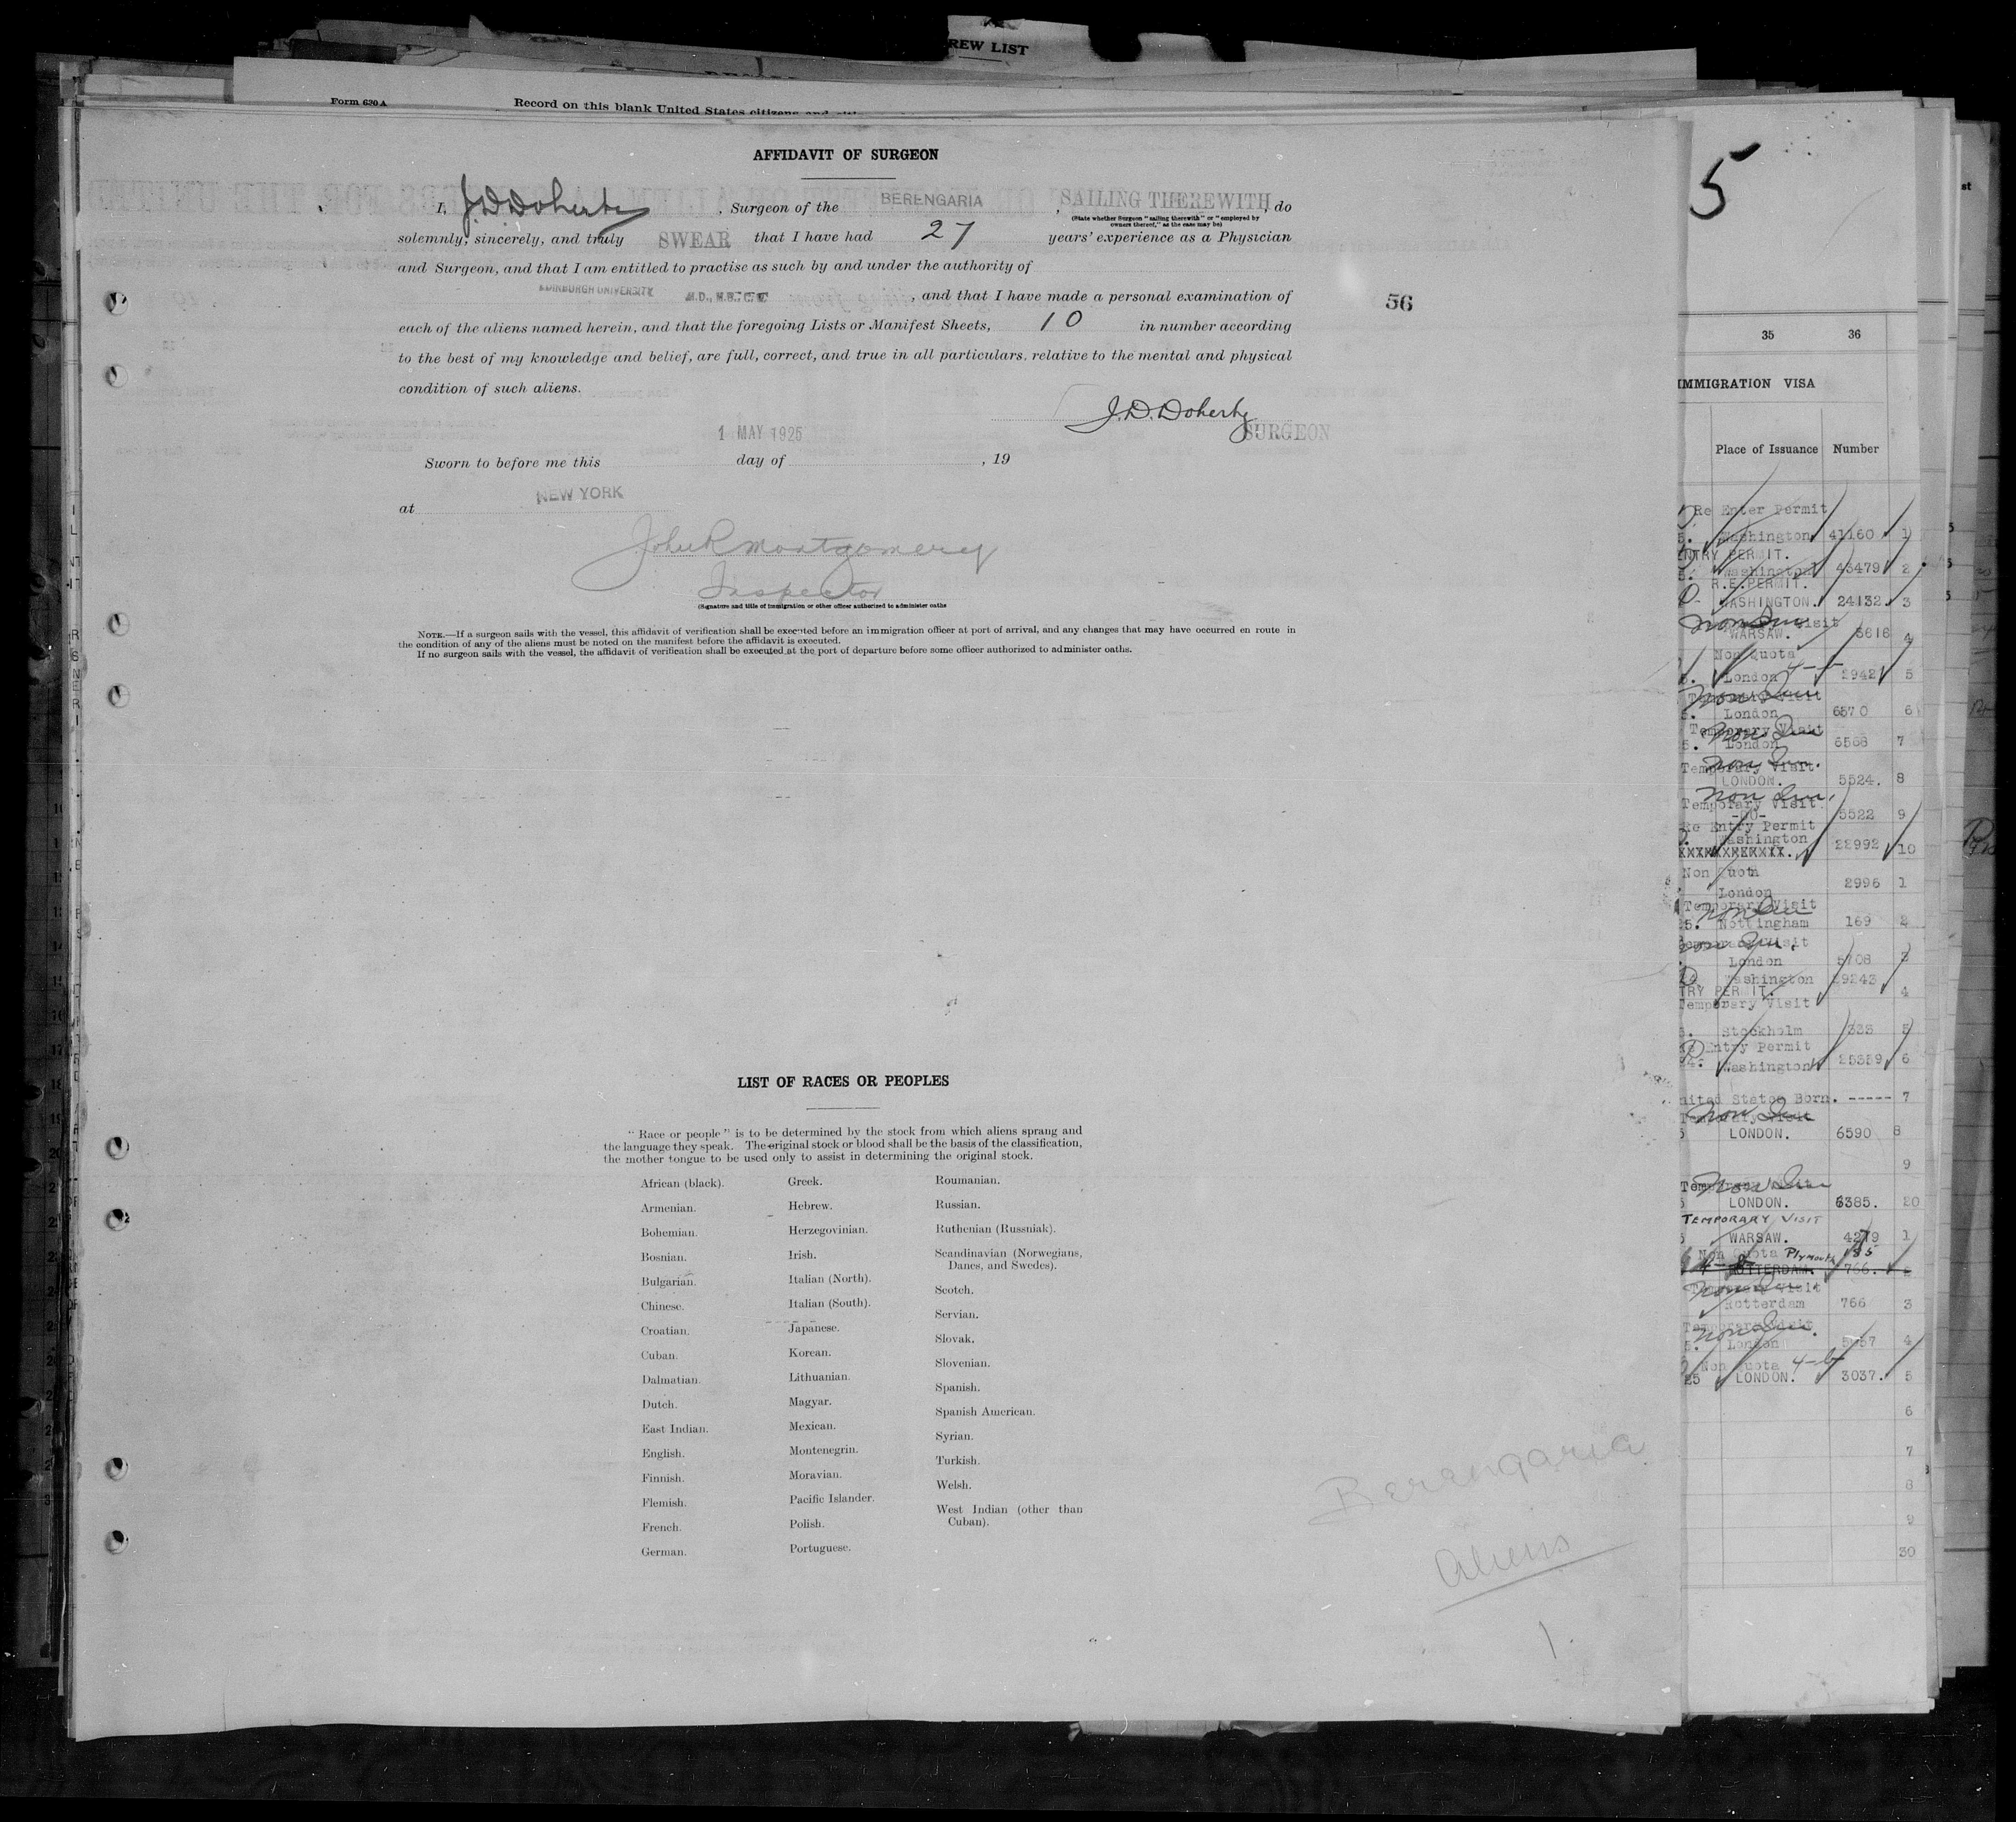 REW LIST
Form 630 A
Record on this blank United States citizens and
5
AFFIDAVIT OF SURGEON
I, J. D. Doherty, Surgeon of the BERENGARIA, SAILING THEREWITH, do
(State whether Surgeon "sailing therewith" or "employed by
owners thereof," as the case may be)
solemnly, sincerely, and truly SWEAR that I have had 27 years' experience as a Physician
and Surgeon, and that I am entitled to practise as such by and under the authority of
EDINBURGH UNIVERSITY M.D., M.B., , and that I have made a personal examination of
56
each of the aliens named herein, and that the foregoing Lists or Manifest Sheets, 10 in number according
to the best of my knowledge and belief, are full, correct, and true in all particulars, relative to the mental and physical
condition of such aliens.
J. D. Doherty
SURGEON
1 MAY 1925
Sworn to before me this day of , 19
at NEW YORK
John R Montgomery
Inspector
(Signature and title of immigration or other officer authorized to administer oaths
NOTE.—If a surgeon sails with the vessel, this affidavit of verification shall be executed before an immigration officer at port of arrival, and any changes that may have occurred en route in
the condition of any of the aliens must be noted on the manifest before the affidavit is executed.
If no surgeon sails with the vessel, the affidavit of verification shall be executed at the port of departure before some officer authorized to administer oaths.
LIST OF RACES OR PEOPLES
"Race or people" is to be determined by the stock from which aliens sprang and
the language they speak. The original stock or blood shall be the basis of the classification,
the mother tongue to be used only to assist in determining the original stock.
African (black).
Armenian.
Bohemian.
Bosnian.
Bulgarian.
Chinese.
Croatian.
Cuban.
Dalmatian.
Dutch.
East Indian.
English.
Finnish.
Flemish.
French.
German.
Greek.
Hebrew.
Herzegovinian.
Irish.
Italian (North).
Italian (South).
Japanese.
Korean.
Lithuanian.
Magyar.
Mexican.
Montenegrin.
Moravian.
Pacific Islander.
Polish.
Portuguese.
Roumanian.
Russian.
Ruthenian (Russniak).
Scandinavian (Norwegians,
Danes, and Swedes).
Scotch.
Servian.
Slovak.
Slovenian.
Spanish.
Spanish American.
Syrian.
Turkish.
Welsh.
West Indian (other than
Cuban).
Berengaria
Aliens
1.
35 36
IMMIGRATION VISA
Place of Issuance Number
Re Enter Permit
Washington 41160 1
NTRY PERMIT.
Washington 43479 2
R.E.PERMIT.
WASHINGTON. 24132. 3
Non Imm visit
WARSAW. 5616 4
Non Quota 4-b
London 2942 5
London 6570 6
Temporary Visit
London 6568 7
Temporary Visit
LONDON. 5524. 8
Non Imm.
Temporary Visit
-DO- 5522 9
Re Entry Permit
Washington 28992 10
Non Quota
London 2996 1
Temporary Visit
Nottingham 169 2
London 5708 3
Washington 29243
TRY PERMIT. 4
Temporary Visit
Stockholm 333 5
Entry Permit
Washington 25359 6
nited States Born. ----- 7
LONDON. 6590 8
9
LONDON. 6385. 20
TEMPORARY VISIT
WARSAW. 4279 1
Non Quota Plymouth 185
ROTTERDAM. 766. 2
Rotterdam 766 3
London 4
Non Quota 4-b
25 LONDON. 3037. 5
6
7
8
9
30